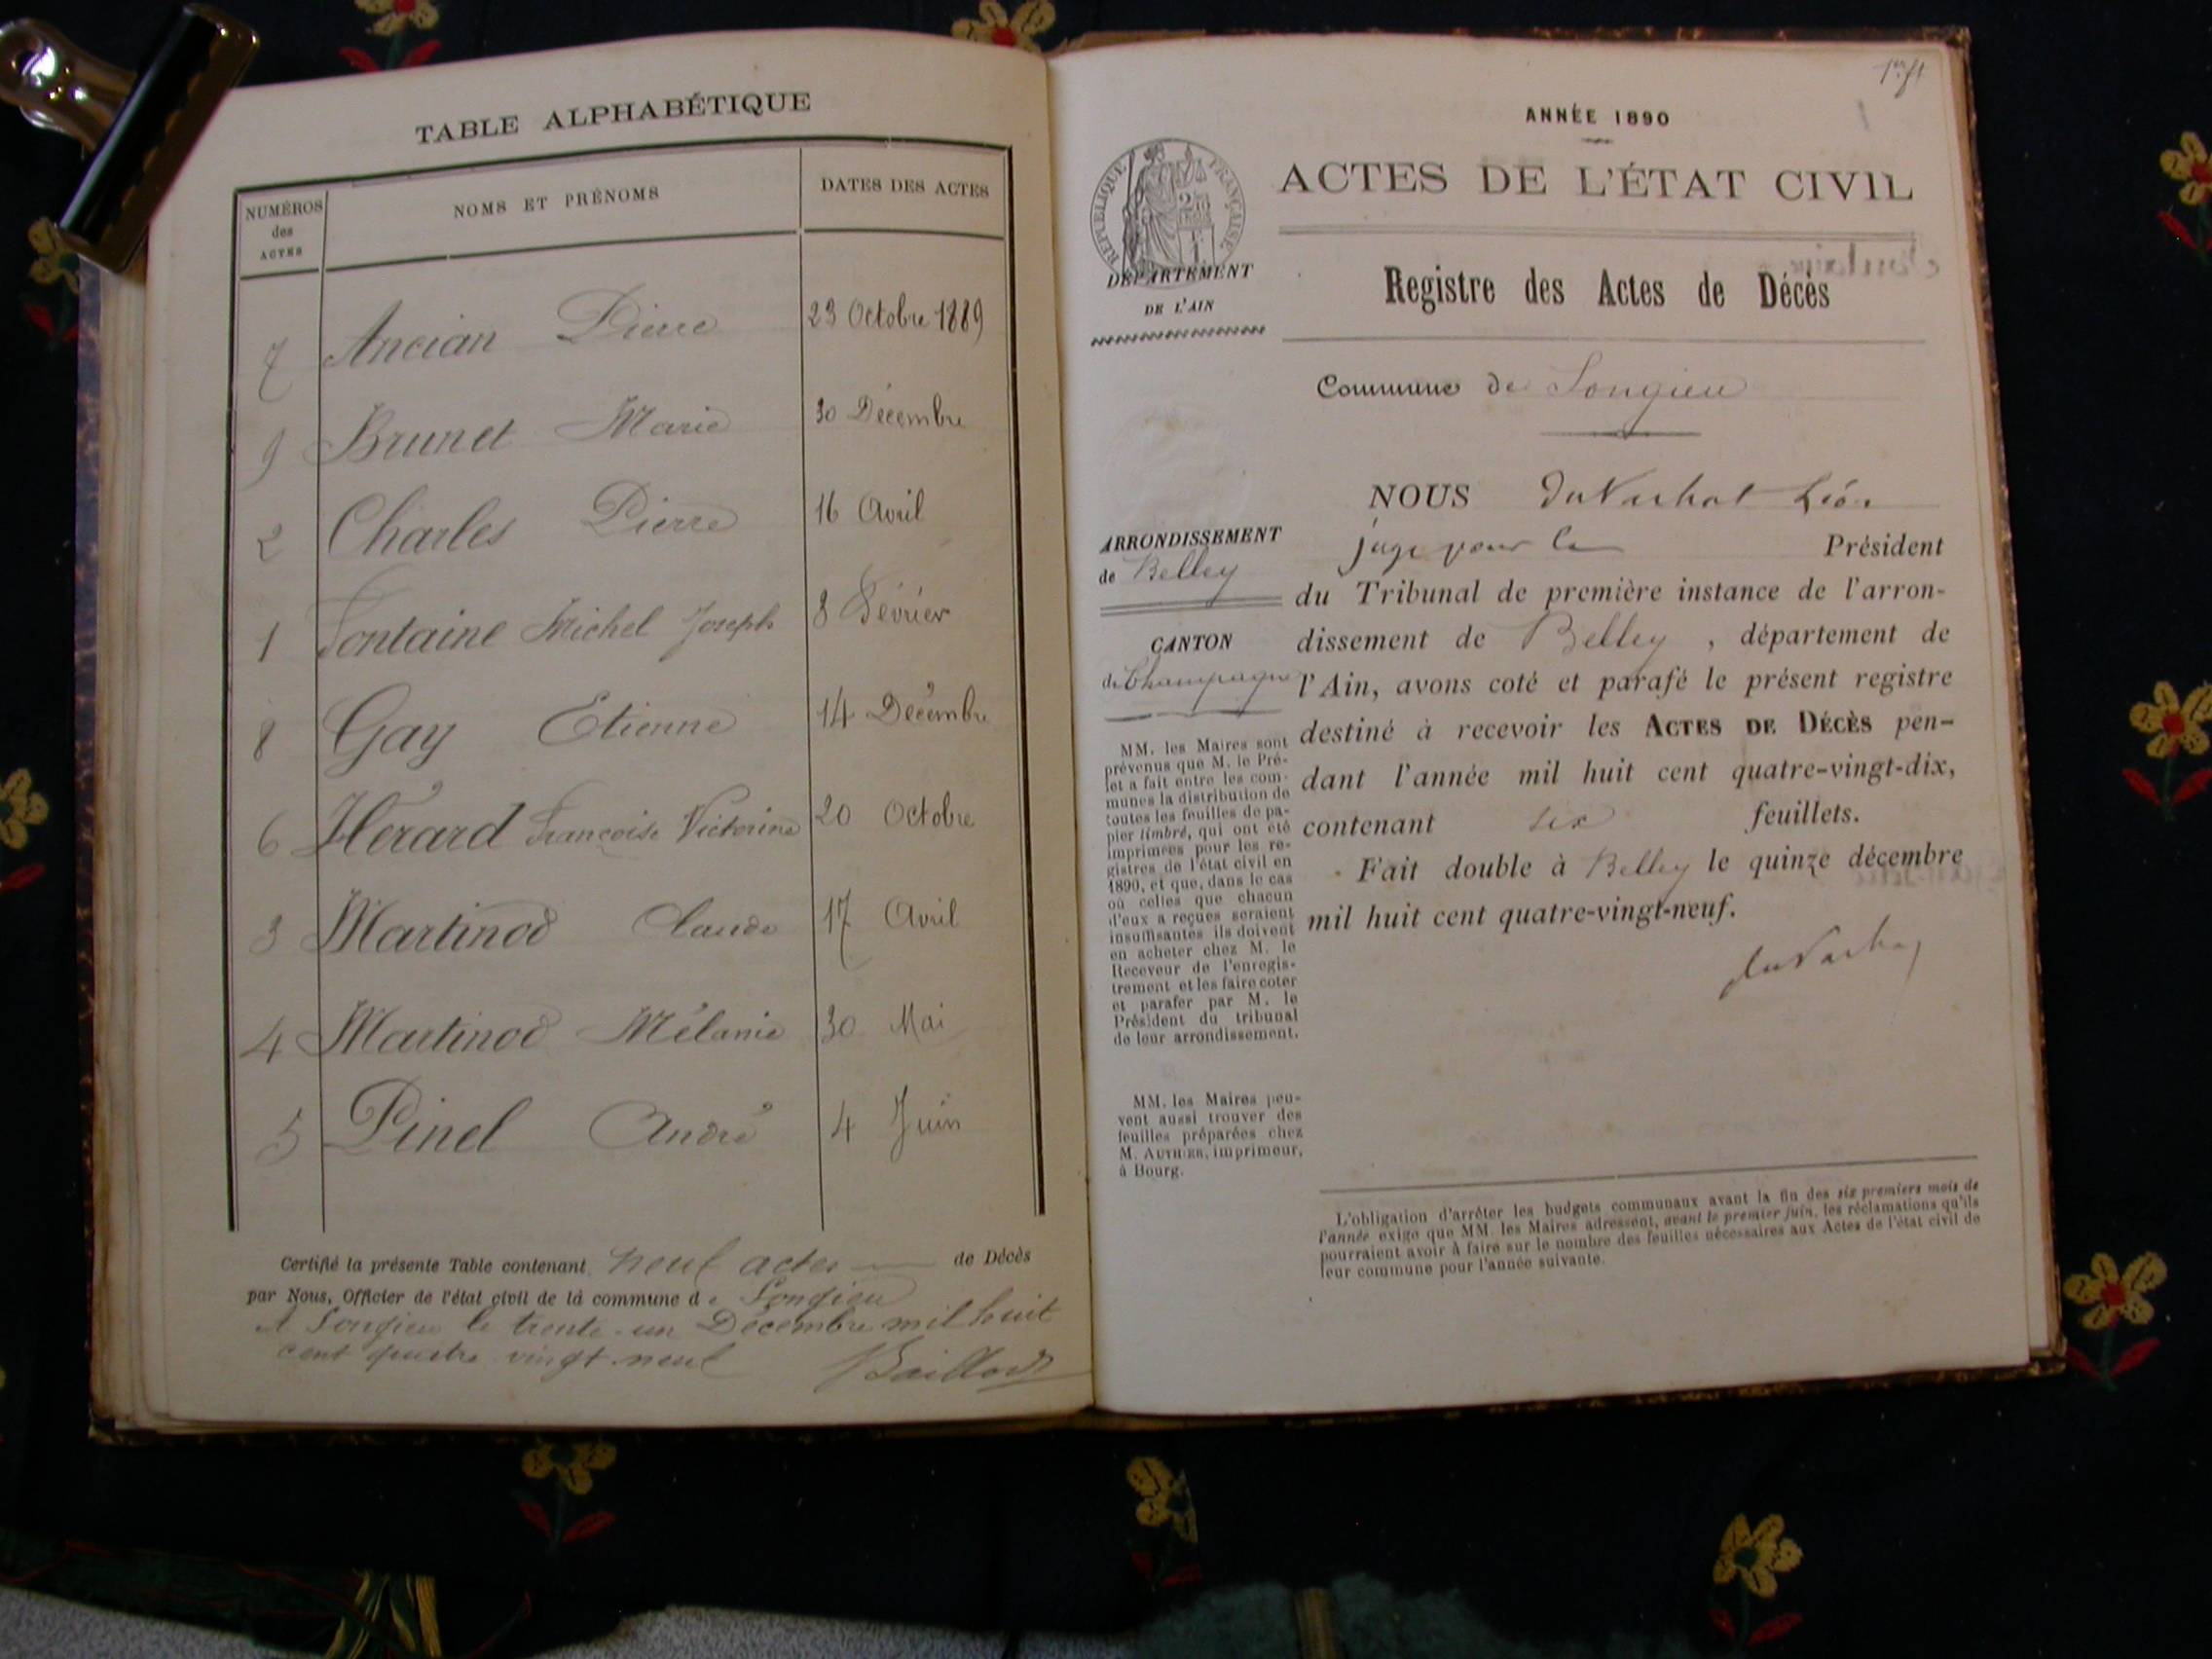 TABLE ALPHABÉTIQUE
NUMÉROS des ACTES NOMS ET PRÉNOMS DATES DES ACTES
7 Ancian Pierre 23 Octobre 1889
9 Brunet Marie 30 Décembre
2 Charles Pierre 16 Avril
1 Fontaine Michel Joseph 8 Février
8 Gay Etienne 14 Décembre
6 Hérard Françoise Victorine 20 Octobre
3 Martinod Claude 17 Avril
4 Martinod Mélanie 30 Mai
5 Pinel André 4 Juin
Certifié la présente Table contenant neuf actes de Décès
par Nous, Officier de l'état civil de la commune de Songieu
A Songieu le trente-un Décembre mil huit
cent quatre vingt-neuf
1er ft
ANNÉE 1890
ACTES DE L'ÉTAT CIVIL
RÉPUBLIQUE FRANÇAISE
DÉPARTEMENT
DE L'AIN
Registre des Actes de Décès
Commune de Songieu
ARRONDISSEMENT
de Belley
CANTON
de Champagne
MM. les Maires sont
prévenus que M. le Pré-
fet a fait entre les com-
munes la distribution de
toutes les feuilles de pa-
pier timbré, qui ont été
imprimées pour les re-
gistres de l'état civil en
1890, et que, dans le cas
où celles que chacun
d'eux a reçues seraient
insuffisantes ils doivent
en acheter chez M. le
Receveur de l'enregis-
trement et les faire coter
et parafer par M. le
Président du tribunal
de leur arrondissement.
MM. les Maires peu-
vent aussi trouver des
feuilles préparées chez
M. AUTHIER, imprimeur,
à Bourg.
NOUS Léon
juge pour le Président
du Tribunal de première instance de l'arron-
dissement de Belley, département de
l'Ain, avons coté et parafé le présent registre
destiné à recevoir les ACTES DE DÉCÈS pen-
dant l'année mil huit cent quatre-vingt-dix,
contenant six feuillets.
Fait double à Belley le quinze décembre
mil huit cent quatre-vingt-neuf.
L'obligation d'arrêter les budgets communaux avant la fin des six premiers mois de
l'année exige que MM. les Maires adressent, avant le premier juin, les réclamations qu'ils
pourraient avoir à faire sur le nombre des feuilles nécessaires aux Actes de l'état civil de
leur commune pour l'année suivante.